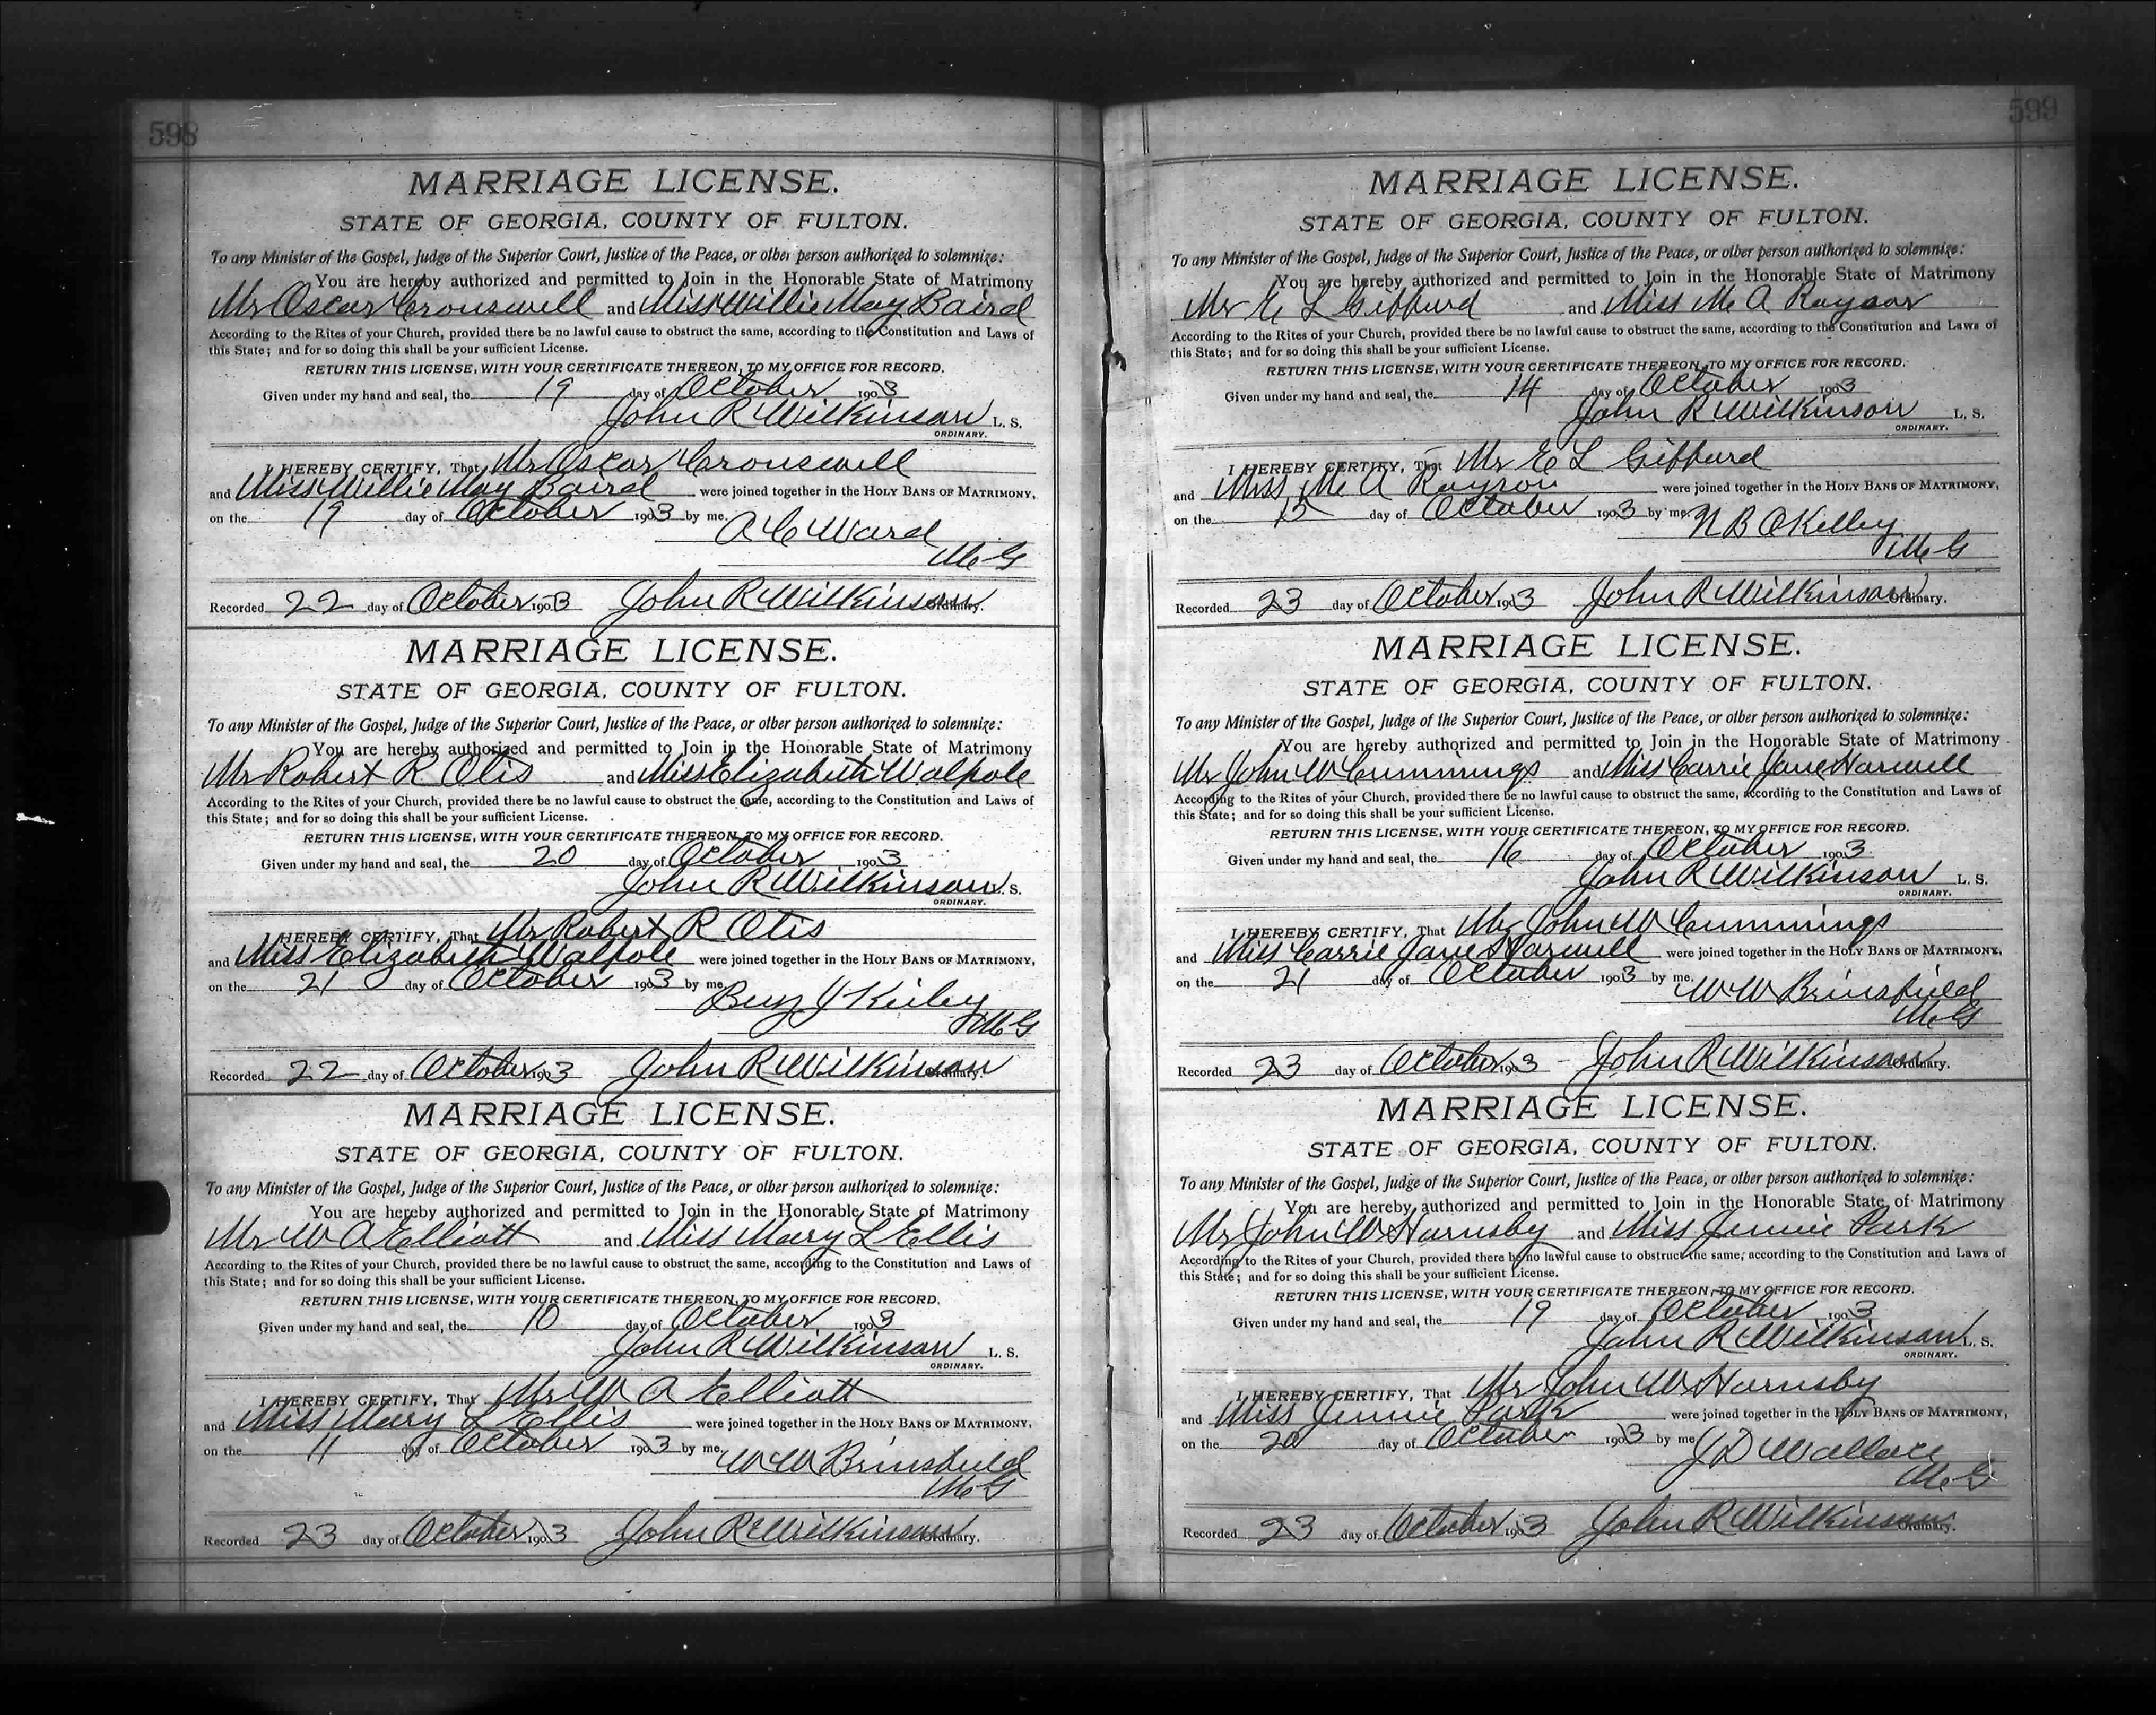 598
MARRIAGE LICENSE.
STATE OF GEORGIA, COUNTY OF FULTON.
To any Minister of the Gospel, Judge of the Superior Court, Justice of the Peace, or other person authorized to solemnize:
You are hereby authorized and permitted to Join in the Honorable State of Matrimony
Mr Oscar Cronswell and Miss Willie May Baird
According to the Rites of your Church, provided there be no lawful cause to obstruct the same, according to the Constitution and Laws of
this State; and for so doing this shall be your sufficient License.
RETURN THIS LICENSE, WITH YOUR CERTIFICATE THEREON, TO MY OFFICE FOR RECORD.
Given under my hand and seal, the 19 day of October 1903
John R Wilkinson L. S.
ORDINARY.
I HEREBY CERTIFY, That Mr Oscar Cronswell
and Miss Willie May Baird were joined together in the HOLY BANS OF MATRIMONY,
on the 19 day of October 1903 by me.
A C Ward
M G
Recorded 22 day of October 1903 John R Wilkinson Ordinary.
MARRIAGE LICENSE.
STATE OF GEORGIA, COUNTY OF FULTON.
To any Minister of the Gospel, Judge of the Superior Court, Justice of the Peace, or other person authorized to solemnize:
You are hereby authorized and permitted to Join in the Honorable State of Matrimony
Mr Robert R Otis and Miss Elizabeth Walpole
According to the Rites of your Church, provided there be no lawful cause to obstruct the same, according to the Constitution and Laws of
this State; and for so doing this shall be your sufficient License.
RETURN THIS LICENSE, WITH YOUR CERTIFICATE THEREON, TO MY OFFICE FOR RECORD.
Given under my hand and seal, the 20 day of October 1903
John R Wilkinson L. S.
ORDINARY.
I HEREBY CERTIFY, That Mr Robert R Otis
and Miss Elizabeth Walpole were joined together in the HOLY BANS OF MATRIMONY,
on the 21 day of October 1903 by me
Benj J Keiley
M G
Recorded 22 day of October 1903 John R Wilkinson Ordinary.
MARRIAGE LICENSE.
STATE OF GEORGIA, COUNTY OF FULTON.
To any Minister of the Gospel, Judge of the Superior Court, Justice of the Peace, or other person authorized to solemnize:
You are hereby authorized and permitted to Join in the Honorable State of Matrimony
Mr W A Elliott and Miss Mary L Ellis
According to the Rites of your Church, provided there be no lawful cause to obstruct the same, according to the Constitution and Laws of
this State; and for so doing this shall be your sufficient License.
RETURN THIS LICENSE, WITH YOUR CERTIFICATE THEREON, TO MY OFFICE FOR RECORD.
Given under my hand and seal, the 10 day of October 1903
John R Wilkinson L. S.
ORDINARY.
I HEREBY CERTIFY, That Mr W A Elliott
and Miss Mary L Ellis were joined together in the HOLY BANS OF MATRIMONY,
on the 11 day of October 1903 by me.
W W Brinsfield
M G
Recorded 23 day of October 1903 John R Wilkinson Ordinary.
599
MARRIAGE LICENSE.
STATE OF GEORGIA, COUNTY OF FULTON.
To any Minister of the Gospel, Judge of the Superior Court, Justice of the Peace, or other person authorized to solemnize:
You are hereby authorized and permitted to Join in the Honorable State of Matrimony
Mr E L Gifford and Miss M A Raysor
According to the Rites of your Church, provided there be no lawful cause to obstruct the same, according to the Constitution and Laws of
this State; and for so doing this shall be your sufficient License.
RETURN THIS LICENSE, WITH YOUR CERTIFICATE THEREON, TO MY OFFICE FOR RECORD.
Given under my hand and seal, the 14 day of October 1903
John R Wilkinson L. S.
ORDINARY.
I HEREBY CERTIFY, That Mr E L Gifford
and Miss M A Raysor were joined together in the HOLY BANS OF MATRIMONY,
on the 15 day of October 1903 by me
N B OKelley
M G
Recorded 23 day of October 1903 John R Wilkinson Ordinary.
MARRIAGE LICENSE.
STATE OF GEORGIA, COUNTY OF FULTON.
To any Minister of the Gospel, Judge of the Superior Court, Justice of the Peace, or other person authorized to solemnize:
You are hereby authorized and permitted to Join in the Honorable State of Matrimony
Mr John W Cummings and Miss Carrie Jane Harwell
According to the Rites of your Church, provided there be no lawful cause to obstruct the same, according to the Constitution and Laws of
this State; and for so doing this shall be your sufficient License.
RETURN THIS LICENSE, WITH YOUR CERTIFICATE THEREON, TO MY OFFICE FOR RECORD.
Given under my hand and seal, the 16 day of October 1903
John R Wilkinson L. S.
ORDINARY.
I HEREBY CERTIFY, That Mr John W Cummings
and Miss Carrie Jane Harwell were joined together in the HOLY BANS OF MATRIMONY,
on the 21 day of October 1903 by me.
W W Brinsfield
M G
Recorded 23 day of October 1903 - John R Wilkinson Ordinary.
MARRIAGE LICENSE.
STATE OF GEORGIA, COUNTY OF FULTON.
To any Minister of the Gospel, Judge of the Superior Court, Justice of the Peace, or other person authorized to solemnize:
You are hereby authorized and permitted to Join in the Honorable State of Matrimony
Mr John W Hornsby and Miss Jennie Park
According to the Rites of your Church, provided there be no lawful cause to obstruct the same, according to the Constitution and Laws of
this State; and for so doing this shall be your sufficient License.
RETURN THIS LICENSE, WITH YOUR CERTIFICATE THEREON, TO MY OFFICE FOR RECORD.
Given under my hand and seal, the 19 day of October 1903
John R Wilkinson L. S.
ORDINARY.
I HEREBY CERTIFY, That Mr John W Hornsby
and Miss Jennie Park were joined together in the HOLY BANS OF MATRIMONY,
on the 20 day of October 1903 by me
J D Wallace
M G
Recorded 23 day of October 1903 John R Wilkinson Ordinary.